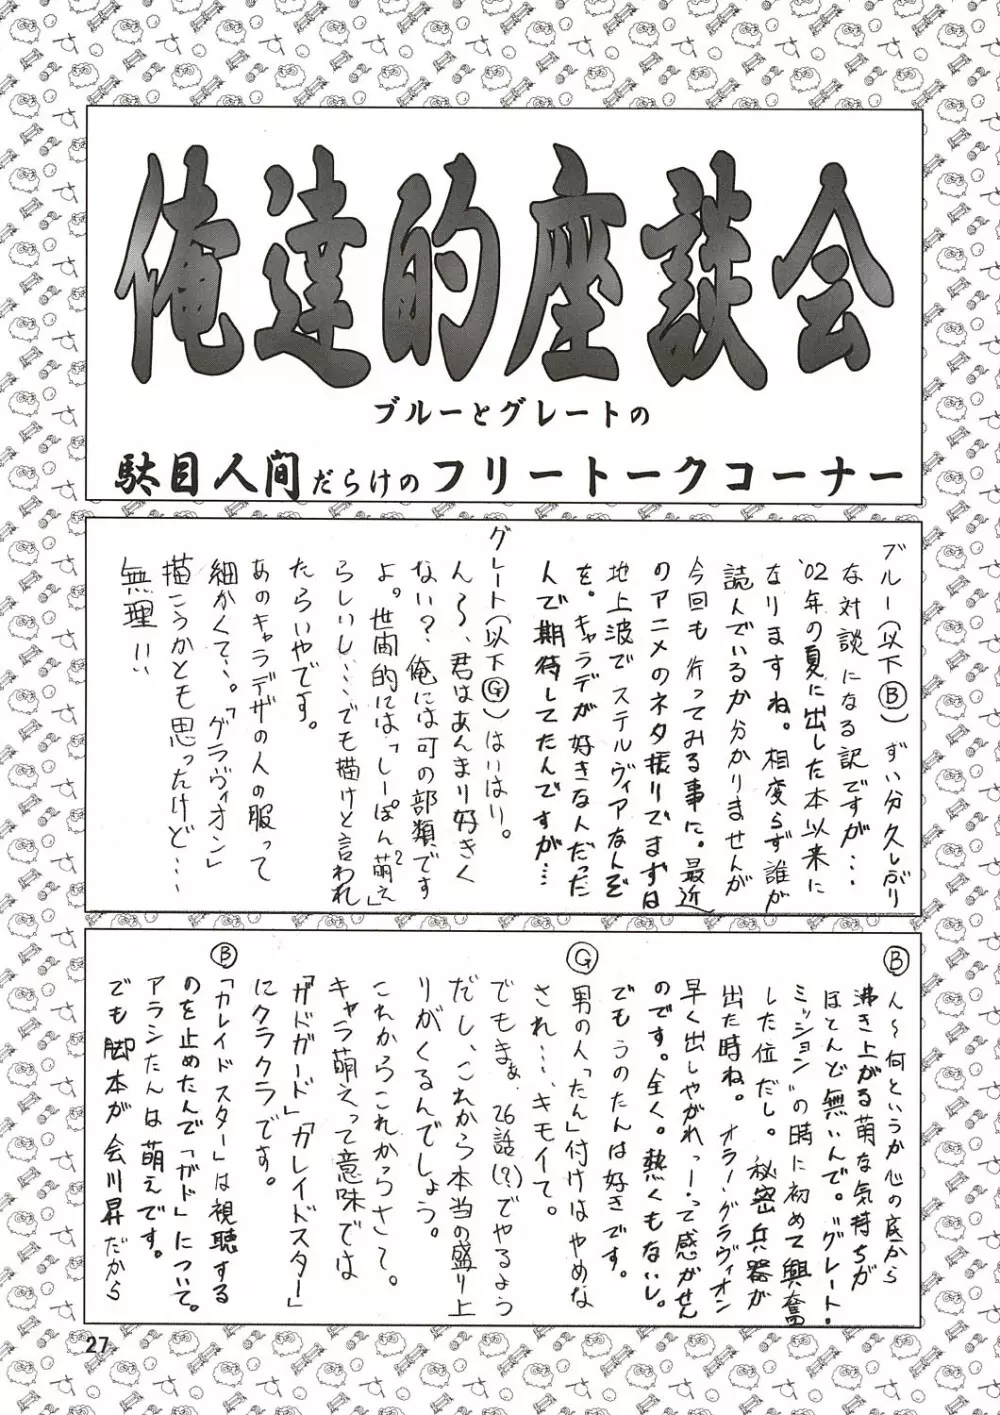 俺達的座談会
ブルーとグレートの
駄目人間だらけのフリートークコーナー
ブルー(以下Ⓑ)ずい分久しぶり
な対談になる訳ですが…
'02年の夏に出した本以来に
なりますね。相変らず誰が
読んでいるか分かりませんが
今回も行ってみる事に。最近
のアニメのネタ振りでまずは
地上波でステルヴィアなんぞ
を。キャラデが好きなんだった
んで期待してたんですが…
グレート(以下Ⓖ)はいはい。
ん〜、君はあんまり好きく
ない?俺には可の部類です
よ。世間的には「しーぽん萌え」
らしいし…でも描けと言われ
たらいやです。
あのキャラデザの人の服って
細かくて…。「グラヴィオン」
描こうかとも思ったけど…
無理!!
Ⓑ
ん〜何というか心の底から
沸き上がる萌な気持ちが
ほとんど無いんで。"グレート・
ミッション"の時に初めて興奮
した位だし。秘密兵器が
出た時ね。オラー・グラヴィオン
早く出しやがれっー・って感がせん
のです。全く。熱くもないし。
でもりのたんは好きです。
Ⓖ
男の人「たん」付けはやめな
され…、キモイて。
でもまぁ、26話(?)でやるよう
だし、これから本当の盛り上
りがくるんでしょう。
これからこれかっさて。
キャラ萌えって意味では
「ガドガード」「カレイドスター」
にクラクラです。
Ⓑ
「カレイドスター」は視聴する
のを止めたんで「ガド」について。
アラシたんは萌えです。
でも脚本が会川昇だから
27